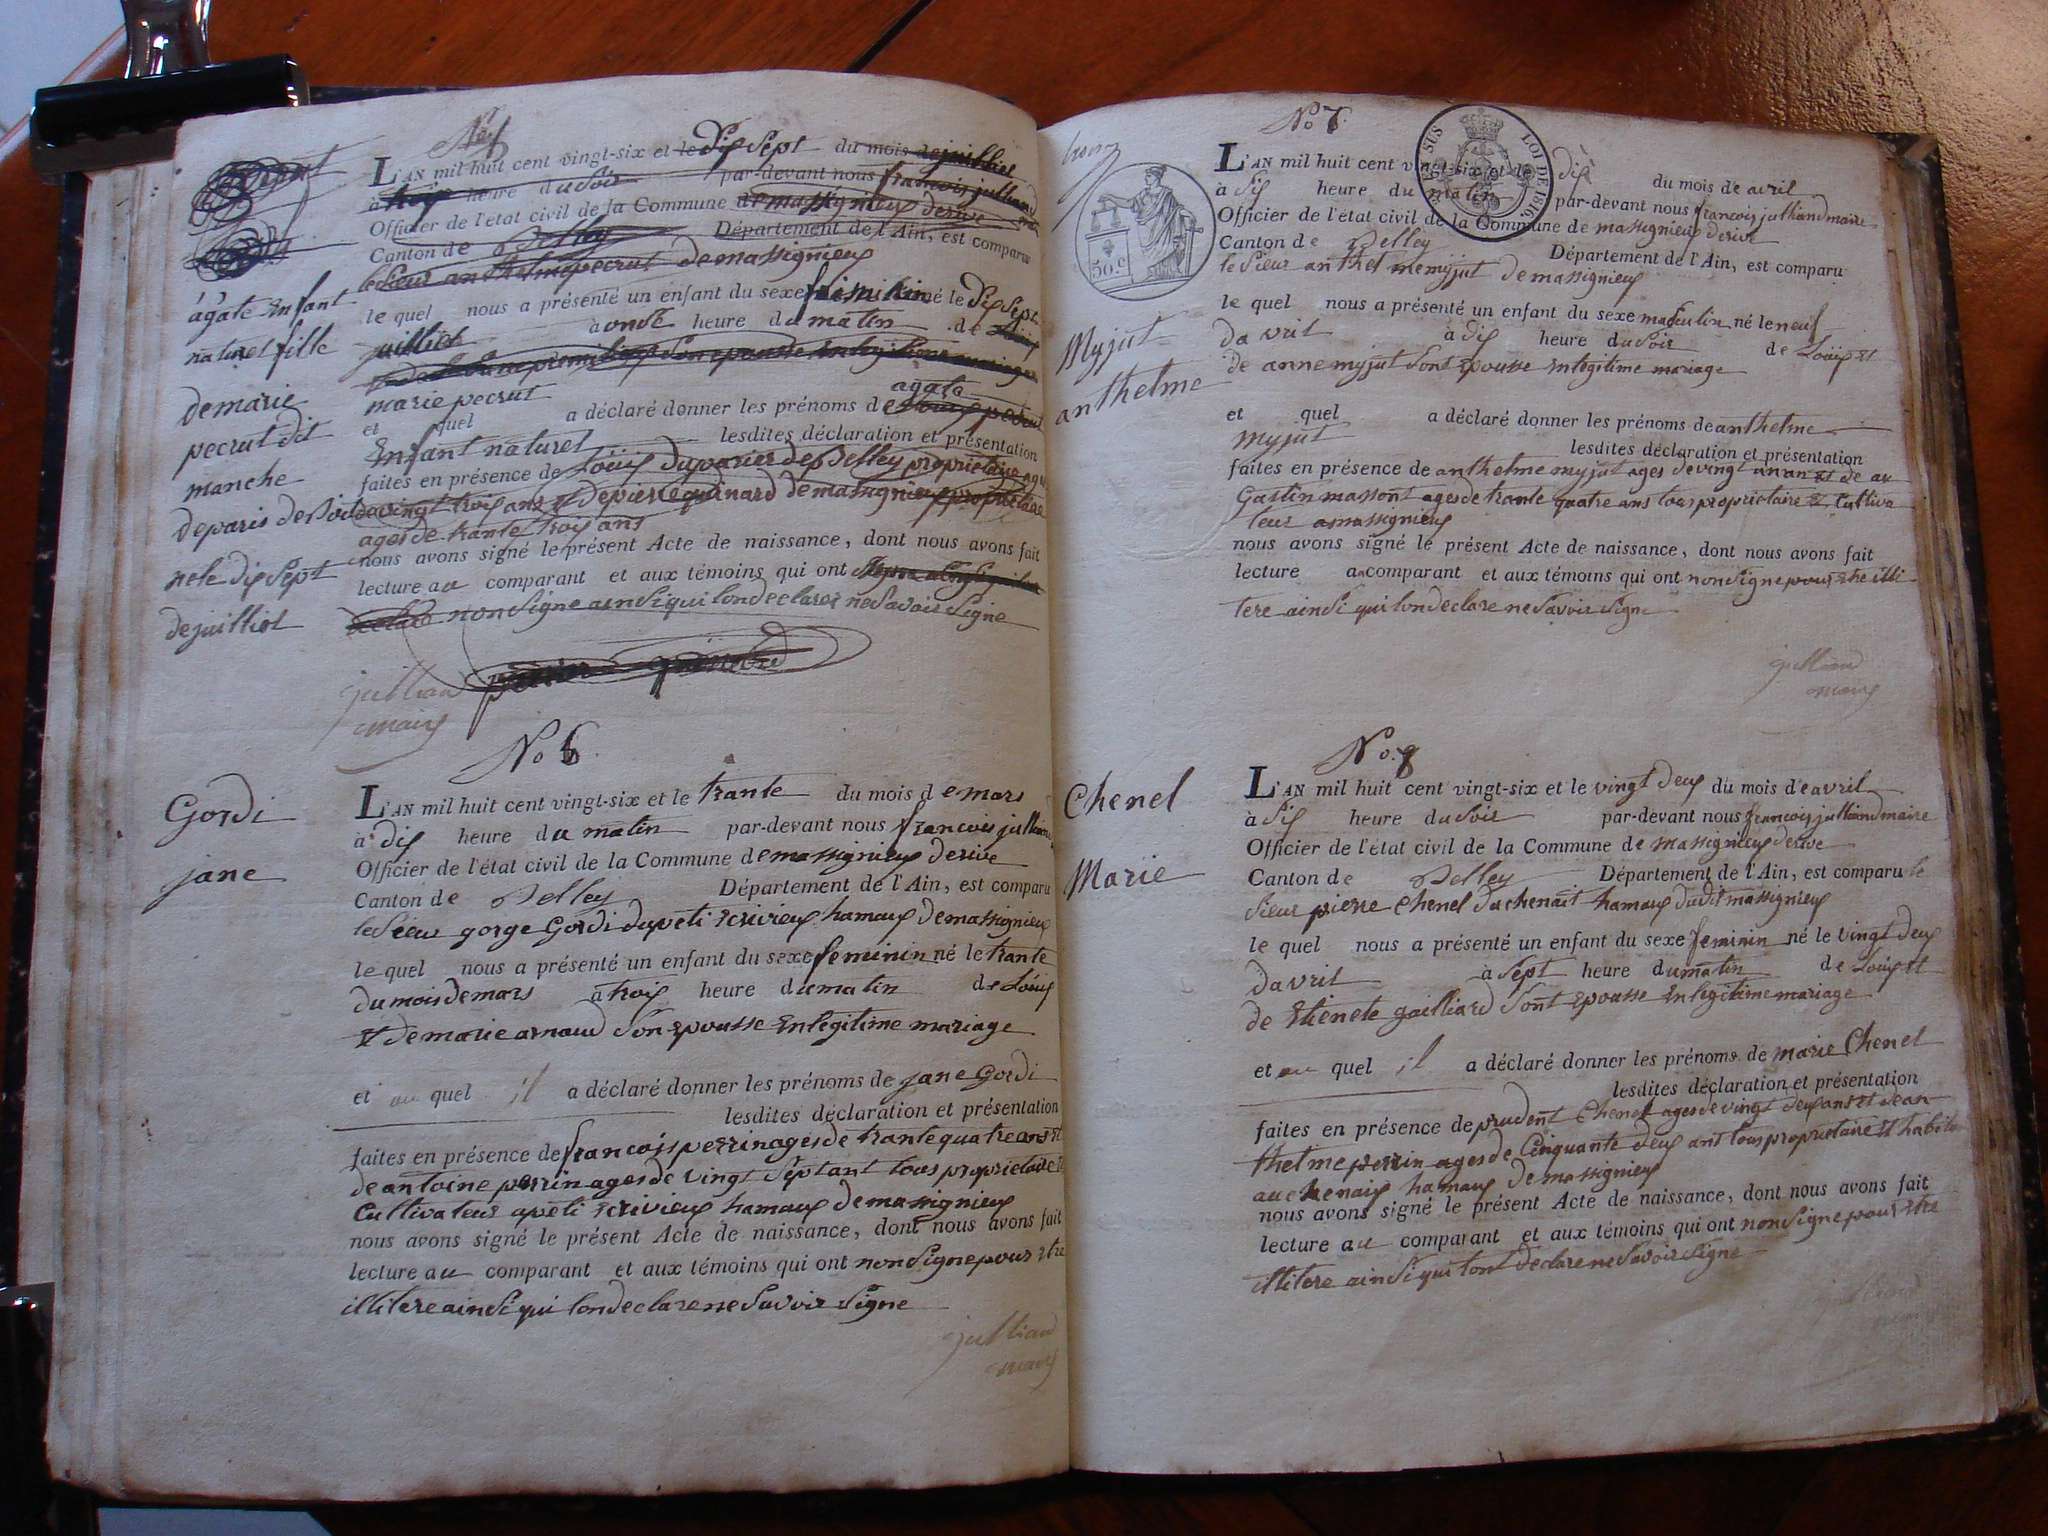 L'AN mil huit cent vingt-six et le Dix Sept du mois de juilliet
à trois heure du soir par-devant nous francois julliand
Officier de l'état civil de la Commune de massignieux derive
Canton de Belley Département de l'Ain, est comparu
le Sieur anthelme pecrut de massignieux
le quel nous a présenté un enfant du sexe feminin né le Dix Sept
juilliet à onse heure du matin de Loüis
marie pecrut
agate
et quel a déclaré donner les prénoms de
Enfant naturel lesdites déclaration et présentation
faites en présence de Loüis duparier de Belley proprietaire
de vingt trois ans et de pierre guinard de massignieux proprietaire
ages de trante trois ans
nous avons signé le présent Acte de naissance, dont nous avons fait
lecture au comparant et aux témoins qui ont
non Signe ainsi qui lon declarer ne Savoir Signe
julliand
maire
agate Enfant
naturel fille
de marie
pecrut dit
manche
ne le dix Sept
de juilliet
No 6.
Gordi
jane
L'AN mil huit cent vingt-six et le trante du mois de mars
à dix heure du matin par-devant nous francois julliand
Officier de l'état civil de la Commune de massignieux derive
Canton de Belley Département de l'Ain, est comparu
le Sieur gorge Gordi du peti Ecrivieux hamaux de massignieux
le quel nous a présenté un enfant du sexe feminin né le trante
du mois de mars à trois heure du matin de Loüis
Et de marie arnaud Son Epousse En legitime mariage
et au quel il a déclaré donner les prénoms de jane Gordi
lesdites déclaration et présentation
faites en présence de francois perrin ages de trante quatre ans Et
de antoine perrin ages de vingt Sept ant tous proprietaire Et
Cultivateur a peti Ecrivieux hamaux de massignieux
nous avons signé le présent Acte de naissance, dont nous avons fait
lecture au comparant et aux témoins qui ont non Signe pour Etre
illitere ainsi qui lon declare ne Savoir Signe
julliand
maire
No 7.
LOI DE 1816.
50.c
Myjut
anthelme
L'AN mil huit cent vingt-six et le dix du mois de avril
à Six heure du matin par-devant nous francois julliand maire
Officier de l'état civil de la Commune de massignieux derive
Canton de Belley Département de l'Ain, est comparu
le Sieur anthelme myjut de massignieux
le quel nous a présenté un enfant du sexe masculin né le neuf
davril à dix heure du soir de Loüis Et
de anne myjut Sont Epousse En legitime mariage
et quel a déclaré donner les prénoms de anthelme
myjut lesdites déclaration et présentation
faites en présence de anthelme myjut ages de vingt un an Et de au
Gastin massont ages de trante quatre ans tous proprietaire Et Cultiva
teur a massignieux
nous avons signé le présent Acte de naissance, dont nous avons fait
lecture au comparant et aux témoins qui ont non Signe pour Etre illi
tere ainsi qui lon declare ne Savoir Signe
julliand
maire
No. 8
Chenel
Marie
L'AN mil huit cent vingt-six et le vingt deux du mois de avril
à Six heure du Soir par-devant nous francois julliand maire
Officier de l'état civil de la Commune de massignieux derive
Canton de Belley Département de l'Ain, est comparu le
Sieur pierre Chenel du chenait hamaux dudit massignieux
le quel nous a présenté un enfant du sexe feminin né le vingt deux
davril à Sept heure du matin de Loüis Et
de Etienete gailliard Sont Epousse En legitime mariage
et au quel il a déclaré donner les prénoms de marie Chenel
lesdites déclaration et présentation
faites en présence de prudent Chenel ages de vingt deux ans Et de an
thelme perrin ages de Cinquante deux ant tous proprietaire Et habitan
au chenaix hamaux de massignieux
nous avons signé le présent Acte de naissance, dont nous avons fait
lecture au comparant et aux témoins qui ont non Signe pour Etre
illitere ainsi qui lont declare ne Savoir Signe
julliand